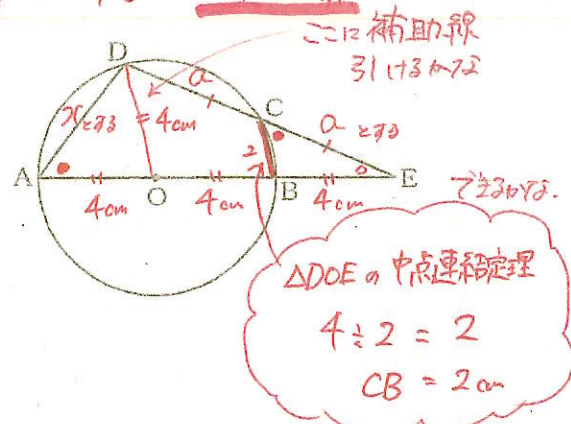 ここに補助線
引けるかな
D
a
C
xとする
=4cm
aとする
2
A
4cm
O
4cm
B
4cm
E
できるかな.
△DOEの中点連結定理
4÷2=2
CB=2cm